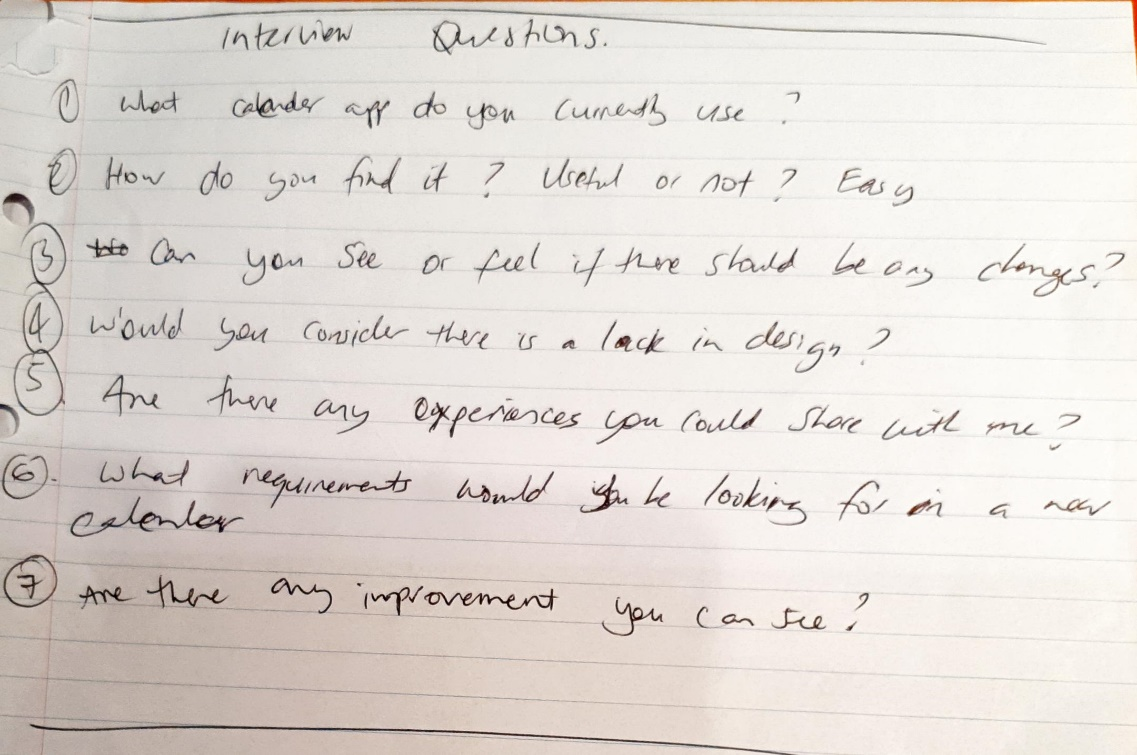 Interview Questions.
① What calender app do you currently use ?
② How do you find it ? Useful or not ? Easy
③ Can you see or feel if there should be any changes?
④ Would you consider there is a lack in design ?
⑤ Are there any experiences you could share with me ?
⑥. What requirements would you be looking for in a new
calender
⑦ Are there any improvement you can see ?